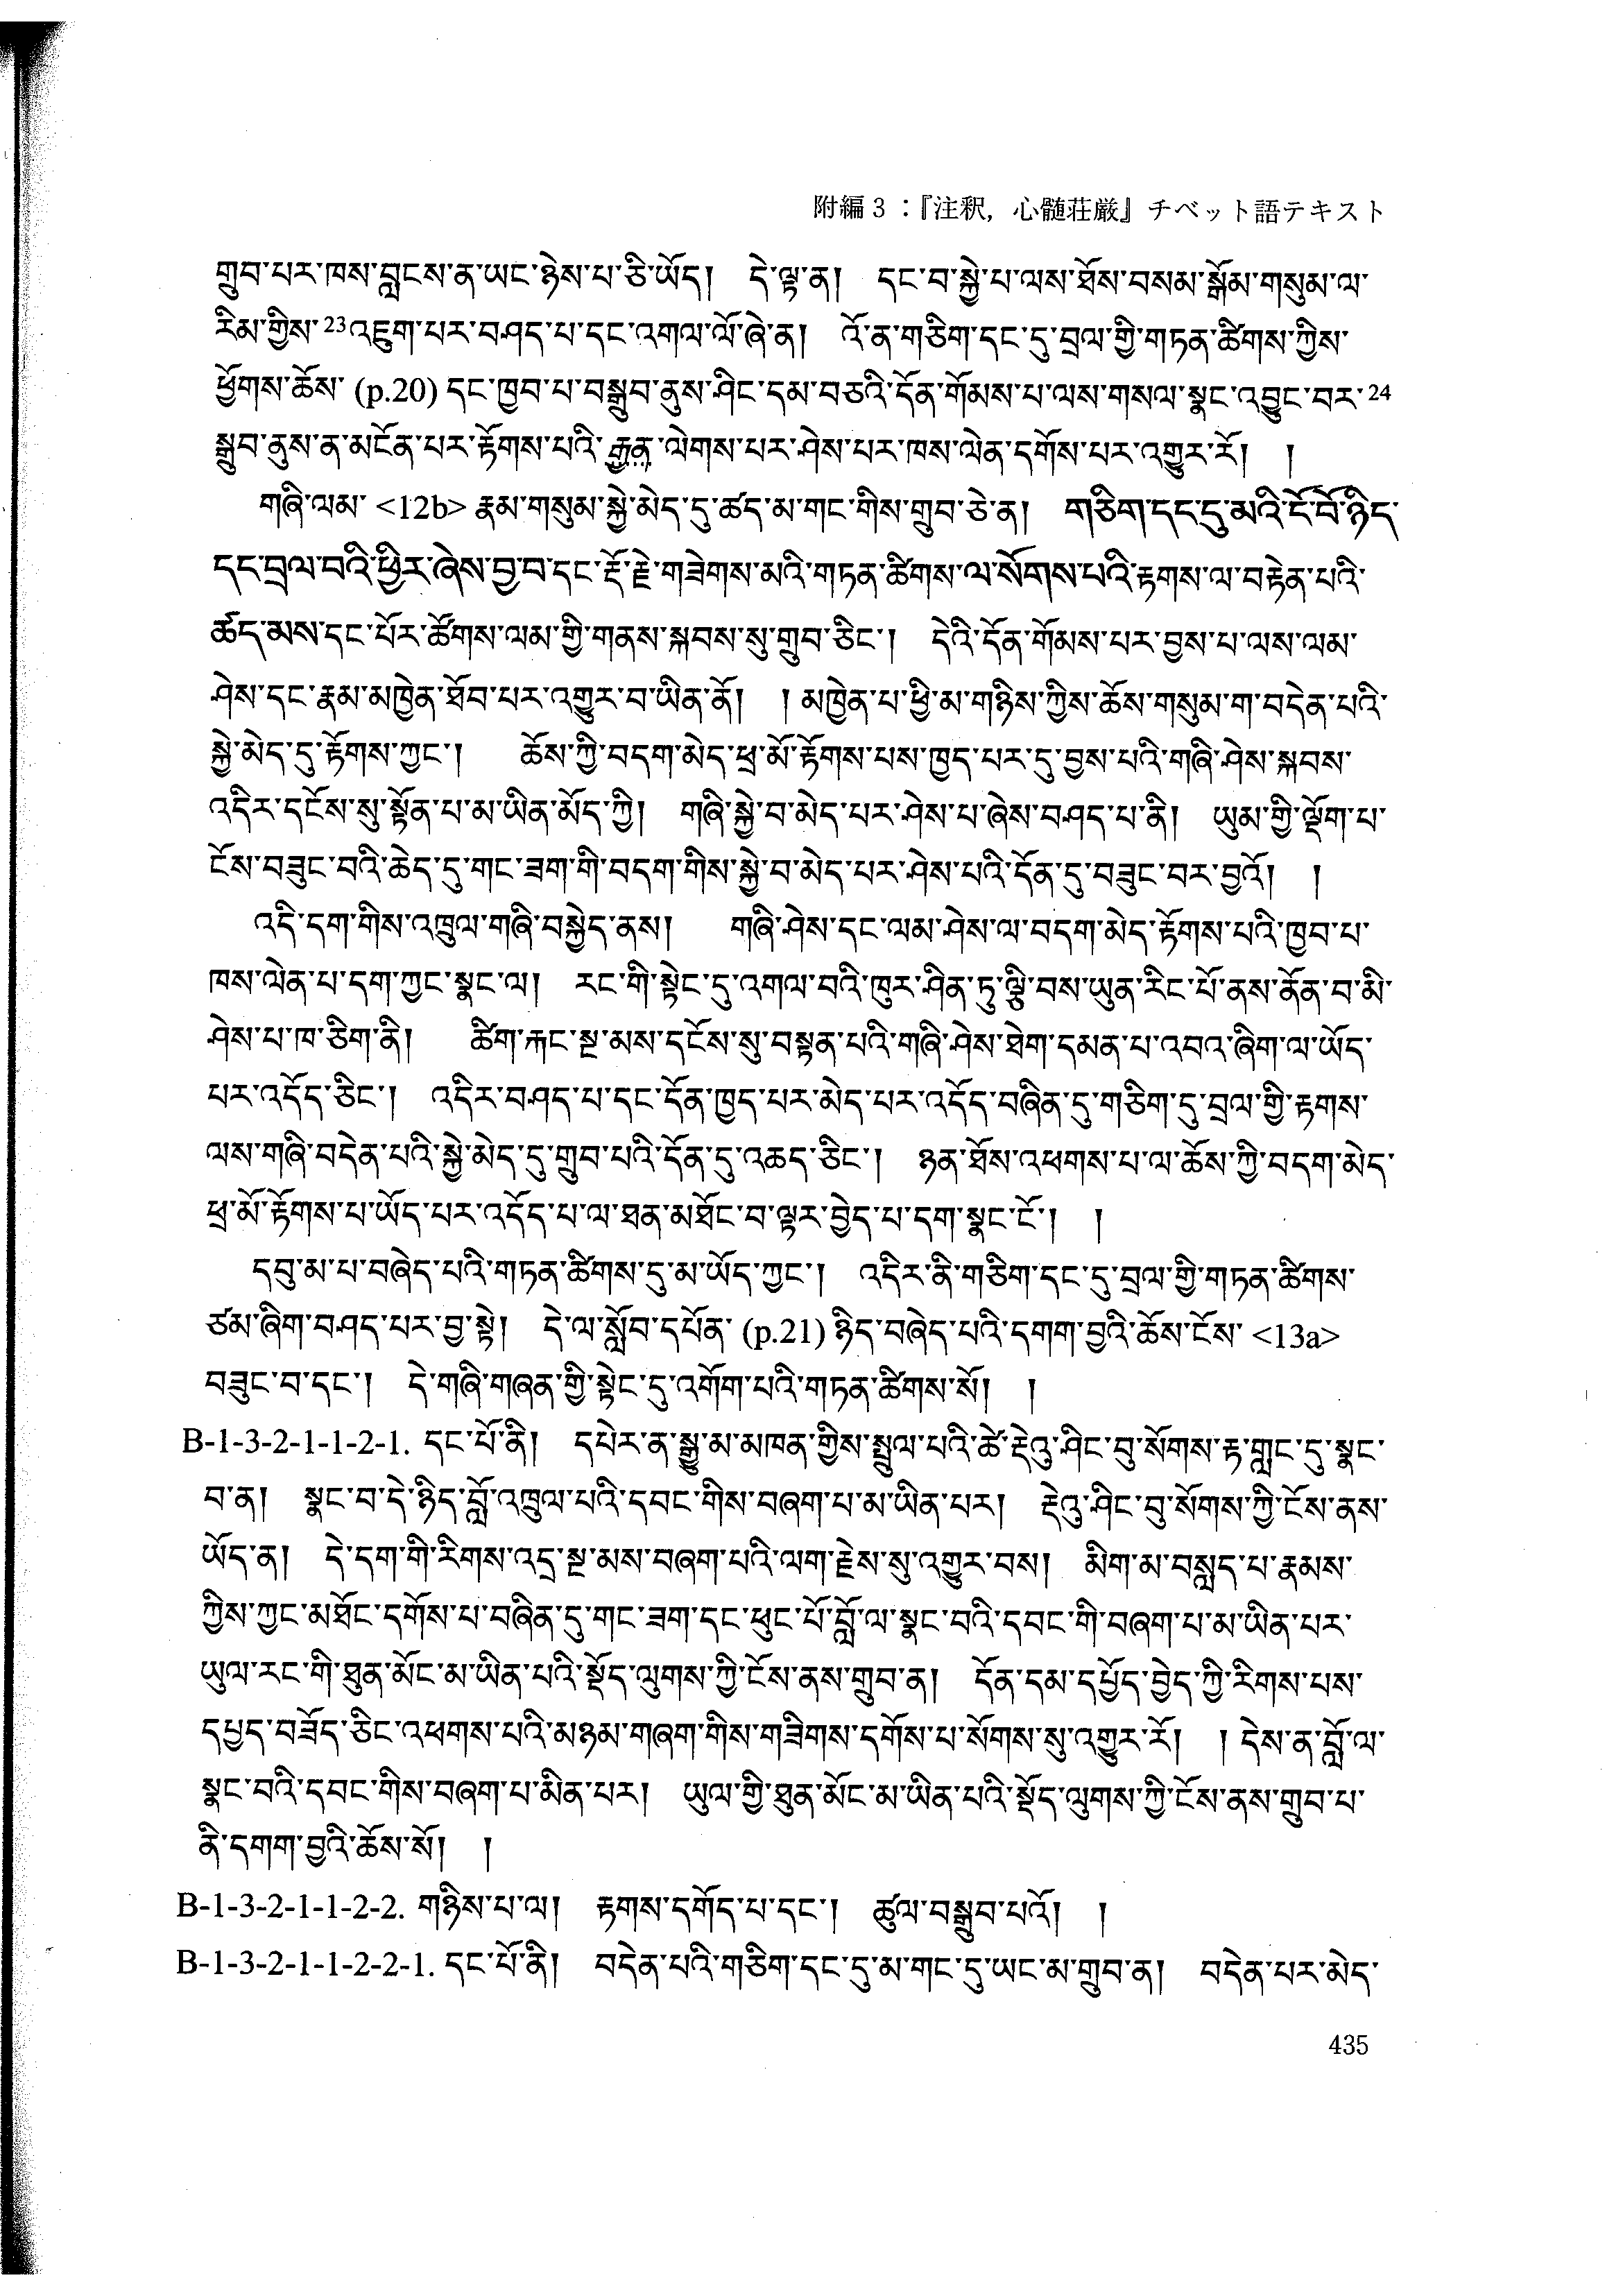 附編 3 :『注釈, 心髄荘厳』チベット語テキスト
གྲུབ་པར་ཁས་བླངས་ན་ཡང་ཉེས་པ་ཅི་ཡོད། དེ་ལྟ་ན། དང་བ་སྐྱེ་པ་ལས་ཐོས་བསམ་སྒོམ་གསུམ་ལ་
རིམ་གྱིས་23འཇུག་པར་བཤད་པ་དང་འགལ་ལོ་ཞེ་ན། འོ་ན་གཅིག་དང་དུ་བྲལ་གྱི་གཏན་ཚིགས་ཀྱིས་
ཕྱོགས་ཆོས་ (p.20) དང་ཁྱབ་པ་བསྒྲུབ་ནུས་ཤིང་དམ་བཅའི་དོན་གོམས་པ་ལས་གསལ་སྣང་འབྱུང་བར་24
སྒྲུབ་ནུས་ན་མངོན་པར་རྟོགས་པའི་རྒྱུན་ལེགས་པར་ཤེས་པར་ཁས་ལེན་དགོས་པར་འགྱུར་རོ། །
གཞི་ལམ་ <12b> རྣམ་གསུམ་སྐྱེ་མེད་དུ་ཚད་མ་གང་གིས་གྲུབ་ཅེ་ན། གཅིག་དང་དུ་མའི་ངོ་བོ་ཉིད་
དང་བྲལ་བའི་ཕྱིར་ཞེས་བྱ་བ་དང་རྡོ་རྗེ་གཟེགས་མའི་གཏན་ཚིགས་ལ་སོགས་པའི་རྟགས་ལ་བརྟེན་པའི་
ཚད་མས་དང་པོར་ཚོགས་ལམ་གྱི་གནས་སྐབས་སུ་གྲུབ་ཅིང་། དེའི་དོན་གོམས་པར་བྱས་པ་ལས་ལམ་
ཤེས་དང་རྣམ་མཁྱེན་ཐོབ་པར་འགྱུར་བ་ཡིན་ནོ། །མཁྱེན་པ་ཕྱི་མ་གཉིས་ཀྱིས་ཆོས་གསུམ་ག་བདེན་པའི་
སྐྱེ་མེད་དུ་རྟོགས་ཀྱང་། ཆོས་ཀྱི་བདག་མེད་ཕྲ་མོ་རྟོགས་པས་ཁྱད་པར་དུ་བྱས་པའི་གཞི་ཤེས་སྐབས་
འདིར་དངོས་སུ་སྟོན་པ་མ་ཡིན་མོད་ཀྱི། གཞི་སྐྱེ་བ་མེད་པར་ཤེས་པ་ཞེས་བཤད་པ་ནི། ཡུམ་གྱི་ལྡོག་པ་
ངོས་བཟུང་བའི་ཆེད་དུ་གང་ཟག་གི་བདག་གིས་སྐྱེ་བ་མེད་པར་ཤེས་པའི་དོན་དུ་བཟུང་བར་བྱའོ། །
འདི་དག་གིས་འཁྲུལ་གཞི་བསྐྱེད་ནས། གཞི་ཤེས་དང་ལམ་ཤེས་ལ་བདག་མེད་རྟོགས་པའི་ཁྱབ་པ་
ཁས་ལེན་པ་དག་ཀྱང་སྣང་ལ། རང་གི་སྟེང་དུ་འགལ་བའི་ཁུར་ཤིན་ཏུ་ལྕི་བས་ཡུན་རིང་པོ་ནས་ནོན་བ་མི་
ཤེས་པ་ཁ་ཅིག་ནི། ཚིག་རྐང་སྔ་མས་དངོས་སུ་བསྟན་པའི་གཞི་ཤེས་ཐེག་དམན་པ་འབའ་ཞིག་ལ་ཡོད་
པར་འདོད་ཅིང་། འདིར་བཤད་པ་དང་དོན་ཁྱད་པར་མེད་པར་འདོད་བཞིན་དུ་གཅིག་དུ་བྲལ་གྱི་རྟགས་
ལས་གཞི་བདེན་པའི་སྐྱེ་མེད་དུ་གྲུབ་པའི་དོན་དུ་འཆད་ཅིང་། ཉན་ཐོས་འཕགས་པ་ལ་ཆོས་ཀྱི་བདག་མེད་
ཕྲ་མོ་རྟོགས་པ་ཡོད་པར་འདོད་པ་ལ་ཐན་མཐོང་བ་ལྟར་བྱེད་པ་དག་སྣང་ངོ་། །
དབུ་མ་པ་བཞེད་པའི་གཏན་ཚིགས་དུ་མ་ཡོད་ཀྱང་། འདིར་ནི་གཅིག་དང་དུ་བྲལ་གྱི་གཏན་ཚིགས་
ཙམ་ཞིག་བཤད་པར་བྱ་སྟེ། དེ་ལ་སློབ་དཔོན་ (p.21) ཉིད་བཞེད་པའི་དགག་བྱའི་ཆོས་ངོས་ <13a>
བཟུང་བ་དང་། དེ་གཞི་གཞན་གྱི་སྟེང་དུ་འགོག་པའི་གཏན་ཚིགས་སོ། །
B-1-3-2-1-1-2-1. དང་པོ་ནི། དཔེར་ན་སྒྱུ་མ་མཁན་གྱིས་སྤྲུལ་པའི་ཚེ་རྡེའུ་ཤིང་བུ་སོགས་རྟ་གླང་དུ་སྣང་
བ་ན། སྣང་བ་དེ་ཉིད་བློ་འཁྲུལ་པའི་དབང་གིས་བཞག་པ་མ་ཡིན་པར། རྡེའུ་ཤིང་བུ་སོགས་ཀྱི་ངོས་ནས་
ཡོད་ན། དེ་དག་གི་རིགས་འདྲ་སྔ་མས་བཞག་པའི་ལག་རྗེས་སུ་འགྱུར་བས། མིག་མ་བསླད་པ་རྣམས་
ཀྱིས་ཀྱང་མཐོང་དགོས་པ་བཞིན་དུ་གང་ཟག་དང་ཕུང་པོ་བློ་ལ་སྣང་བའི་དབང་གི་བཞག་པ་མ་ཡིན་པར་
ཡུལ་རང་གི་ཐུན་མོང་མ་ཡིན་པའི་སྡོད་ལུགས་ཀྱི་ངོས་ནས་གྲུབ་ན། དོན་དམ་དཔྱོད་བྱེད་ཀྱི་རིགས་པས་
དཔྱད་བཟོད་ཅིང་འཕགས་པའི་མཉམ་གཞག་གིས་གཟིགས་དགོས་པ་སོགས་སུ་འགྱུར་རོ། །དེས་ན་བློ་ལ་
སྣང་བའི་དབང་གིས་བཞག་པ་མིན་པར། ཡུལ་གྱི་ཐུན་མོང་མ་ཡིན་པའི་སྡོད་ལུགས་ཀྱི་ངོས་ནས་གྲུབ་པ་
ནི་དགག་བྱའི་ཆོས་སོ། །
B-1-3-2-1-1-2-2. གཉིས་པ་ལ། རྟགས་དགོད་པ་དང་། ཚུལ་བསྒྲུབ་པའོ། །
B-1-3-2-1-1-2-2-1. དང་པོ་ནི། བདེན་པའི་གཅིག་དང་དུ་མ་གང་དུ་ཡང་མ་གྲུབ་ན། བདེན་པར་མེད་
435